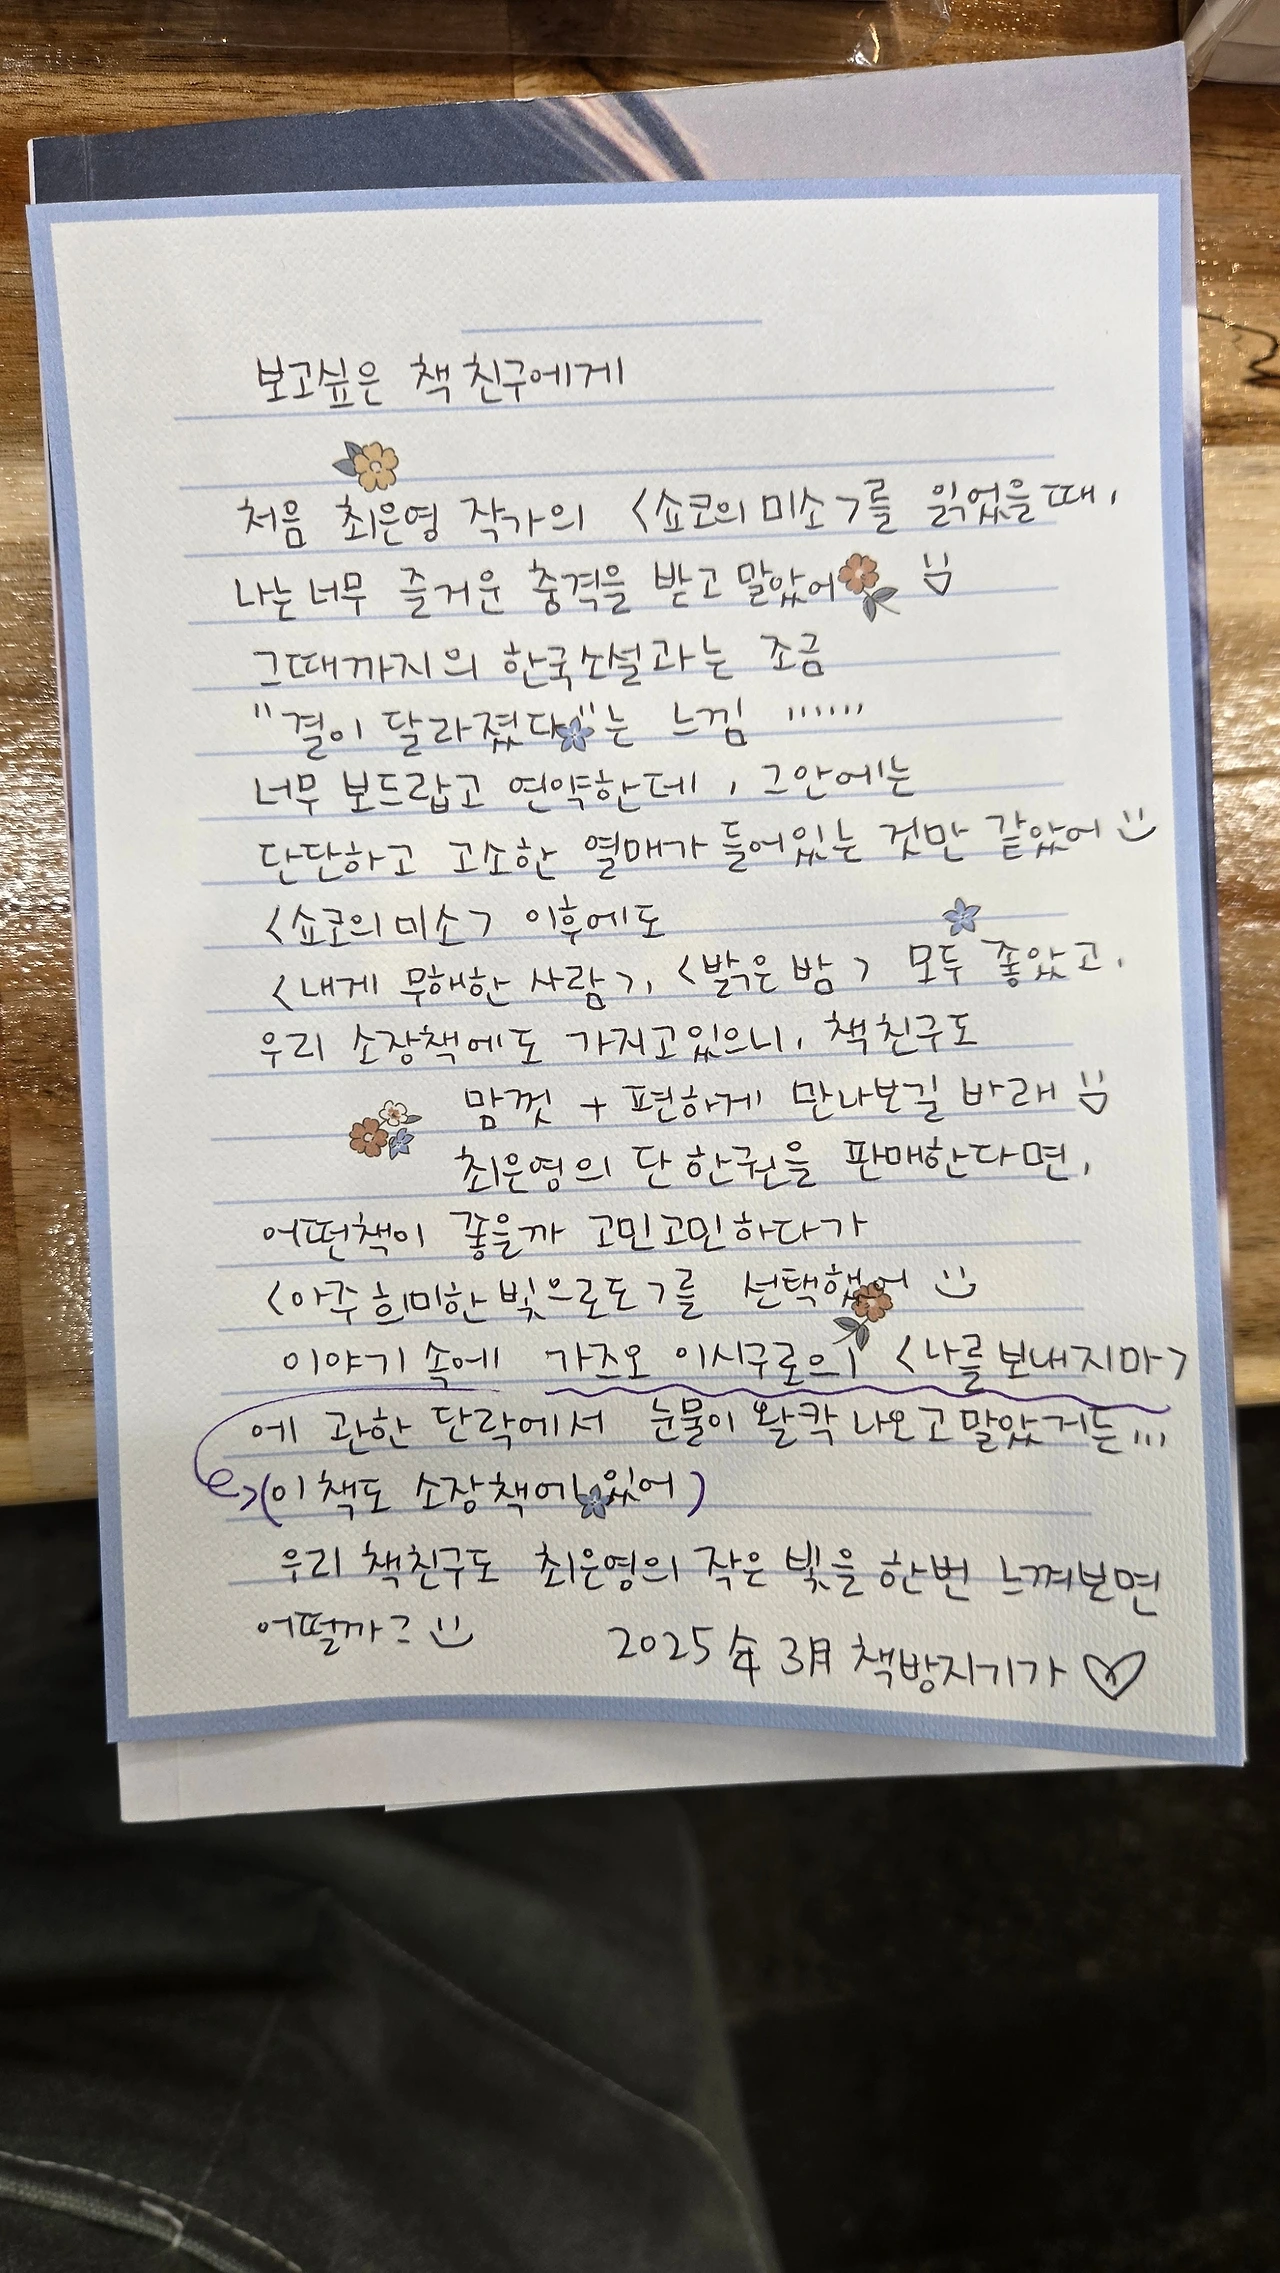 보고싶은 책 친구에게
처음 최은영 작가의 <쇼코의 미소>를 읽었을때,
나는 너무 즐거운 충격을 받고 말았어
그때까지의 한국소설과는 조금
"결이 달라졌다"는 느낌 ......
너무 보드랍고 연약한데, 그안에는
단단하고 고소한 열매가 들어있는 것만 같았어
<쇼코의 미소> 이후에도
<내게 무해한 사람>, <밝은 밤> 모두 좋았고,
우리 소장책에도 가지고있으니, 책친구도
맘껏 + 편하게 만나보길 바래
최은영의 단 한권을 판매한다면,
어떤책이 좋을까 고민고민하다가
<아주 희미한 빛으로도>를 선택했어
이야기 속에 가즈오 이시구로의 <나를 보내지마>
에 관한 단락에서 눈물이 왈칵 나오고 말았거든...
(이 책도 소장책에 있어)
우리 책친구도 최은영의 작은 빛을 한번 느껴보면
어떨까?
2025年 3月 책방지기가